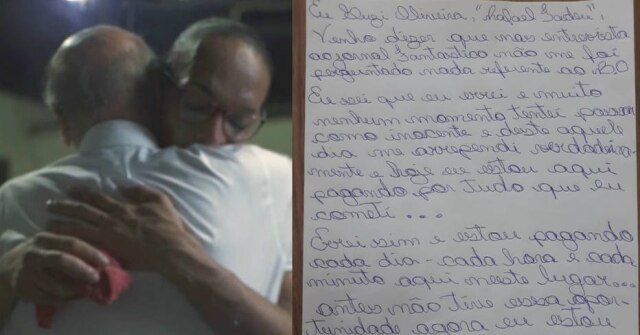 Eu Suzi Oliveira, "Rafael Tadeu",
Venho dizer que nas entrevista
ao jornal Fantastico não me foi
perguntado nada referente ao B.O
Eu sei que eu errei e muito
nenhum momento tentei passar
como inocente e deste aquele
dia me arrependi verdadeira-
mente e hoje eu estou aqui
pagando por tudo que eu
cometi...
Errei sim e estou pagando
cada dia - cada hora e cada
minuto aqui neste lugar...
antes não tive essa opor-
tunidade agora eu estou